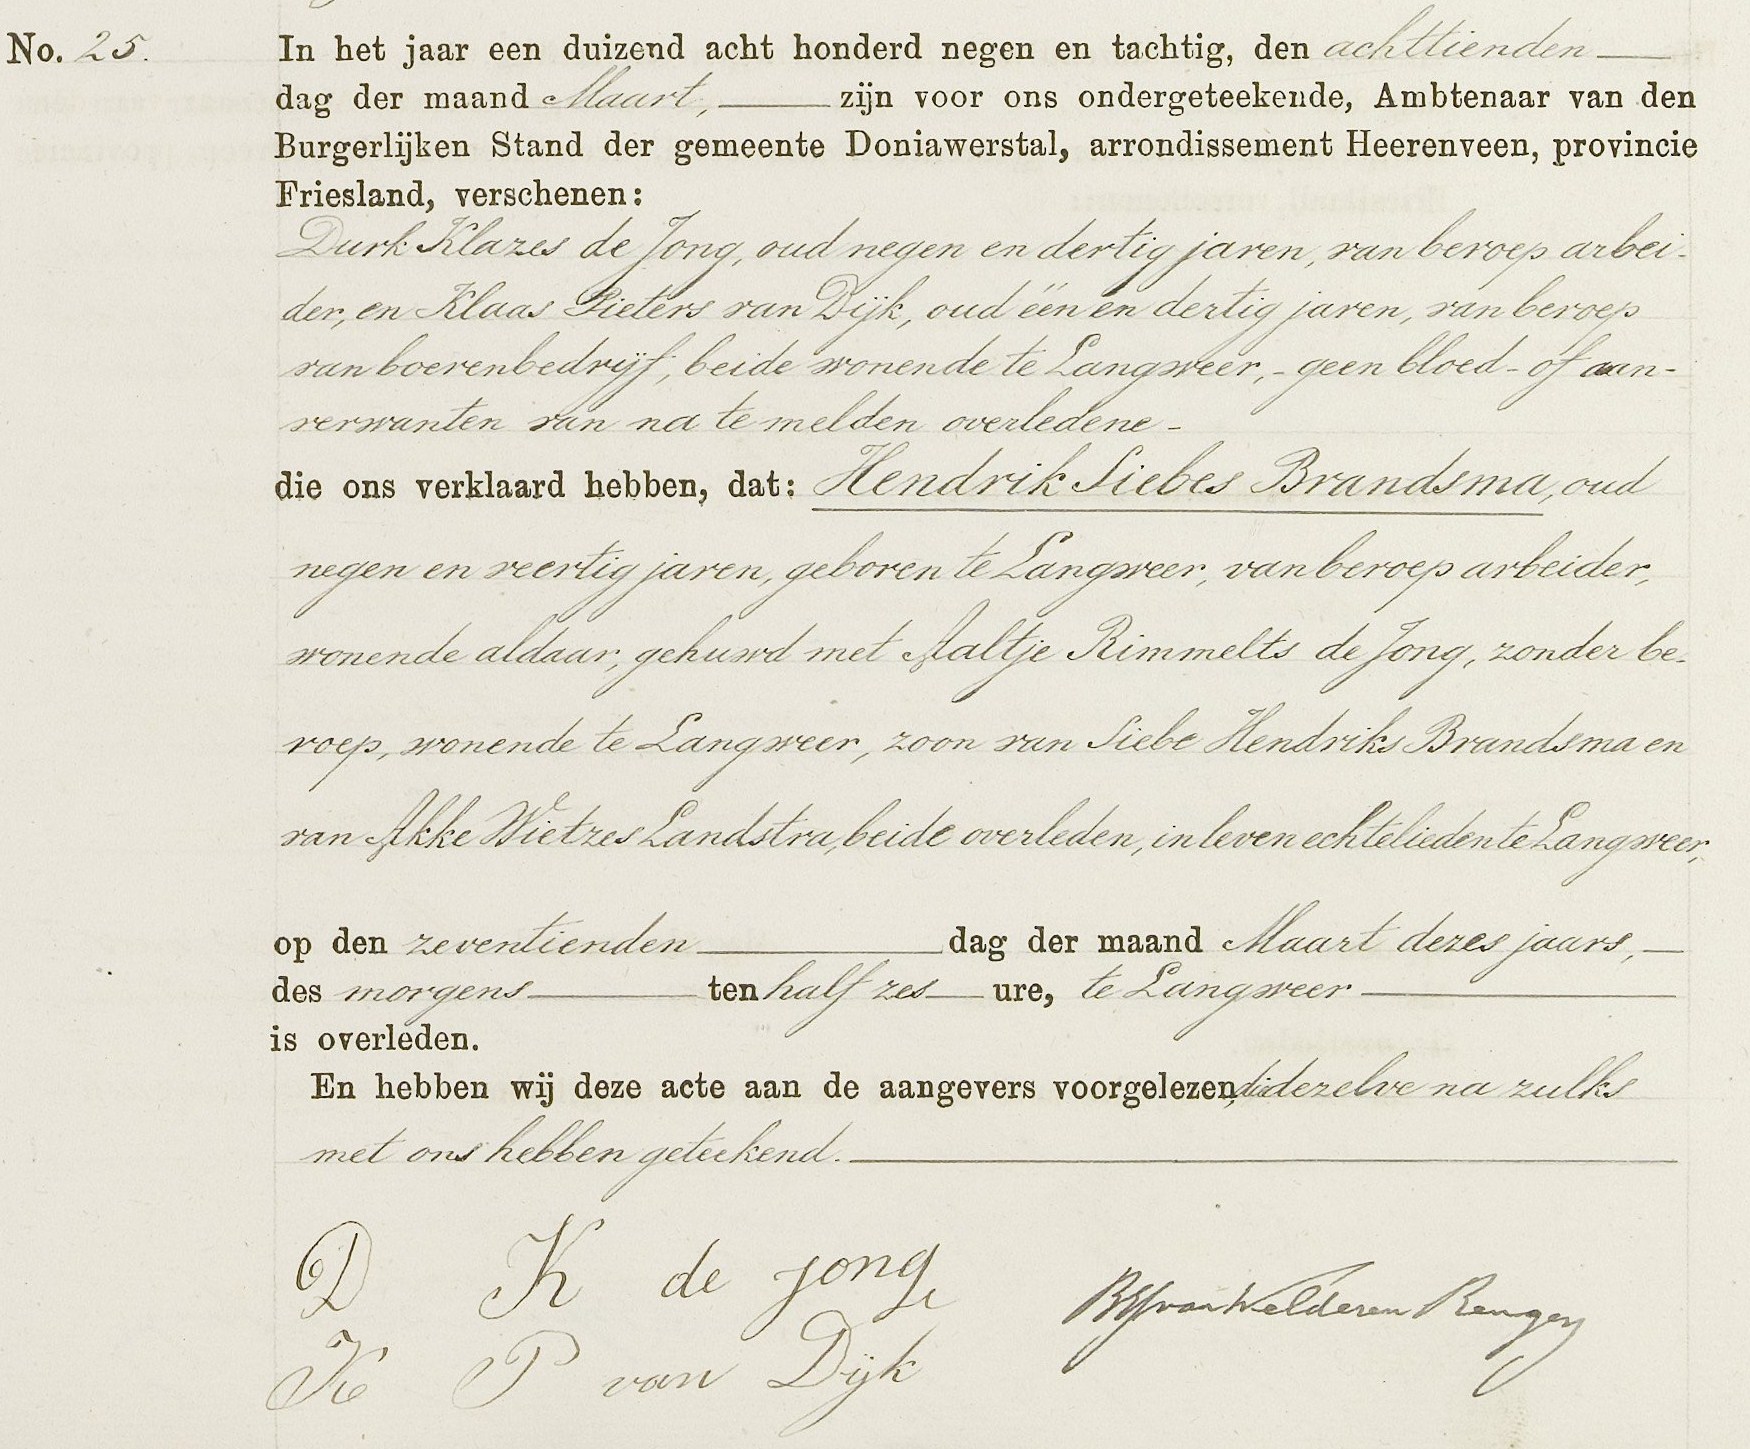 No. 25.
In het jaar een duizend acht honderd negen en tachtig, den achttienden
dag der maand Maart, zijn voor ons ondergeteekende, Ambtenaar van den
Burgerlijken Stand der gemeente Doniawerstal, arrondissement Heerenveen, provincie
Friesland, verschenen:
Durk Klazes de Jong, oud negen en dertig jaren, van beroep arbei-
der, en Klaas Pieters van Dijk, oud één en dertig jaren, van beroep
van boerenbedrijf, beide wonende te Langweer, - geen bloed- of aan-
verwanten van na te melden overledene -
die ons verklaard hebben, dat: Hendrik Siebes Brandsma, oud
negen en veertig jaren, geboren te Langweer, van beroep arbeider,
wonende aldaar, gehuwd met Aaltje Rimmelts de Jong, zonder be-
roep, wonende te Langweer, zoon van Siebe Hendriks Brandsma en
van Akke Wietzes Landstra, beide overleden, in leven echtelieden te Langweer,
op den zeventienden dag der maand Maart dezes jaars,
des morgens ten half zes ure, te Langweer
is overleden.
En hebben wij deze acte aan de aangevers voorgelezen, dezelve na zulks
met ons hebben geteekend.
D K de jong
van Welderen Rengers
K P van Dijk